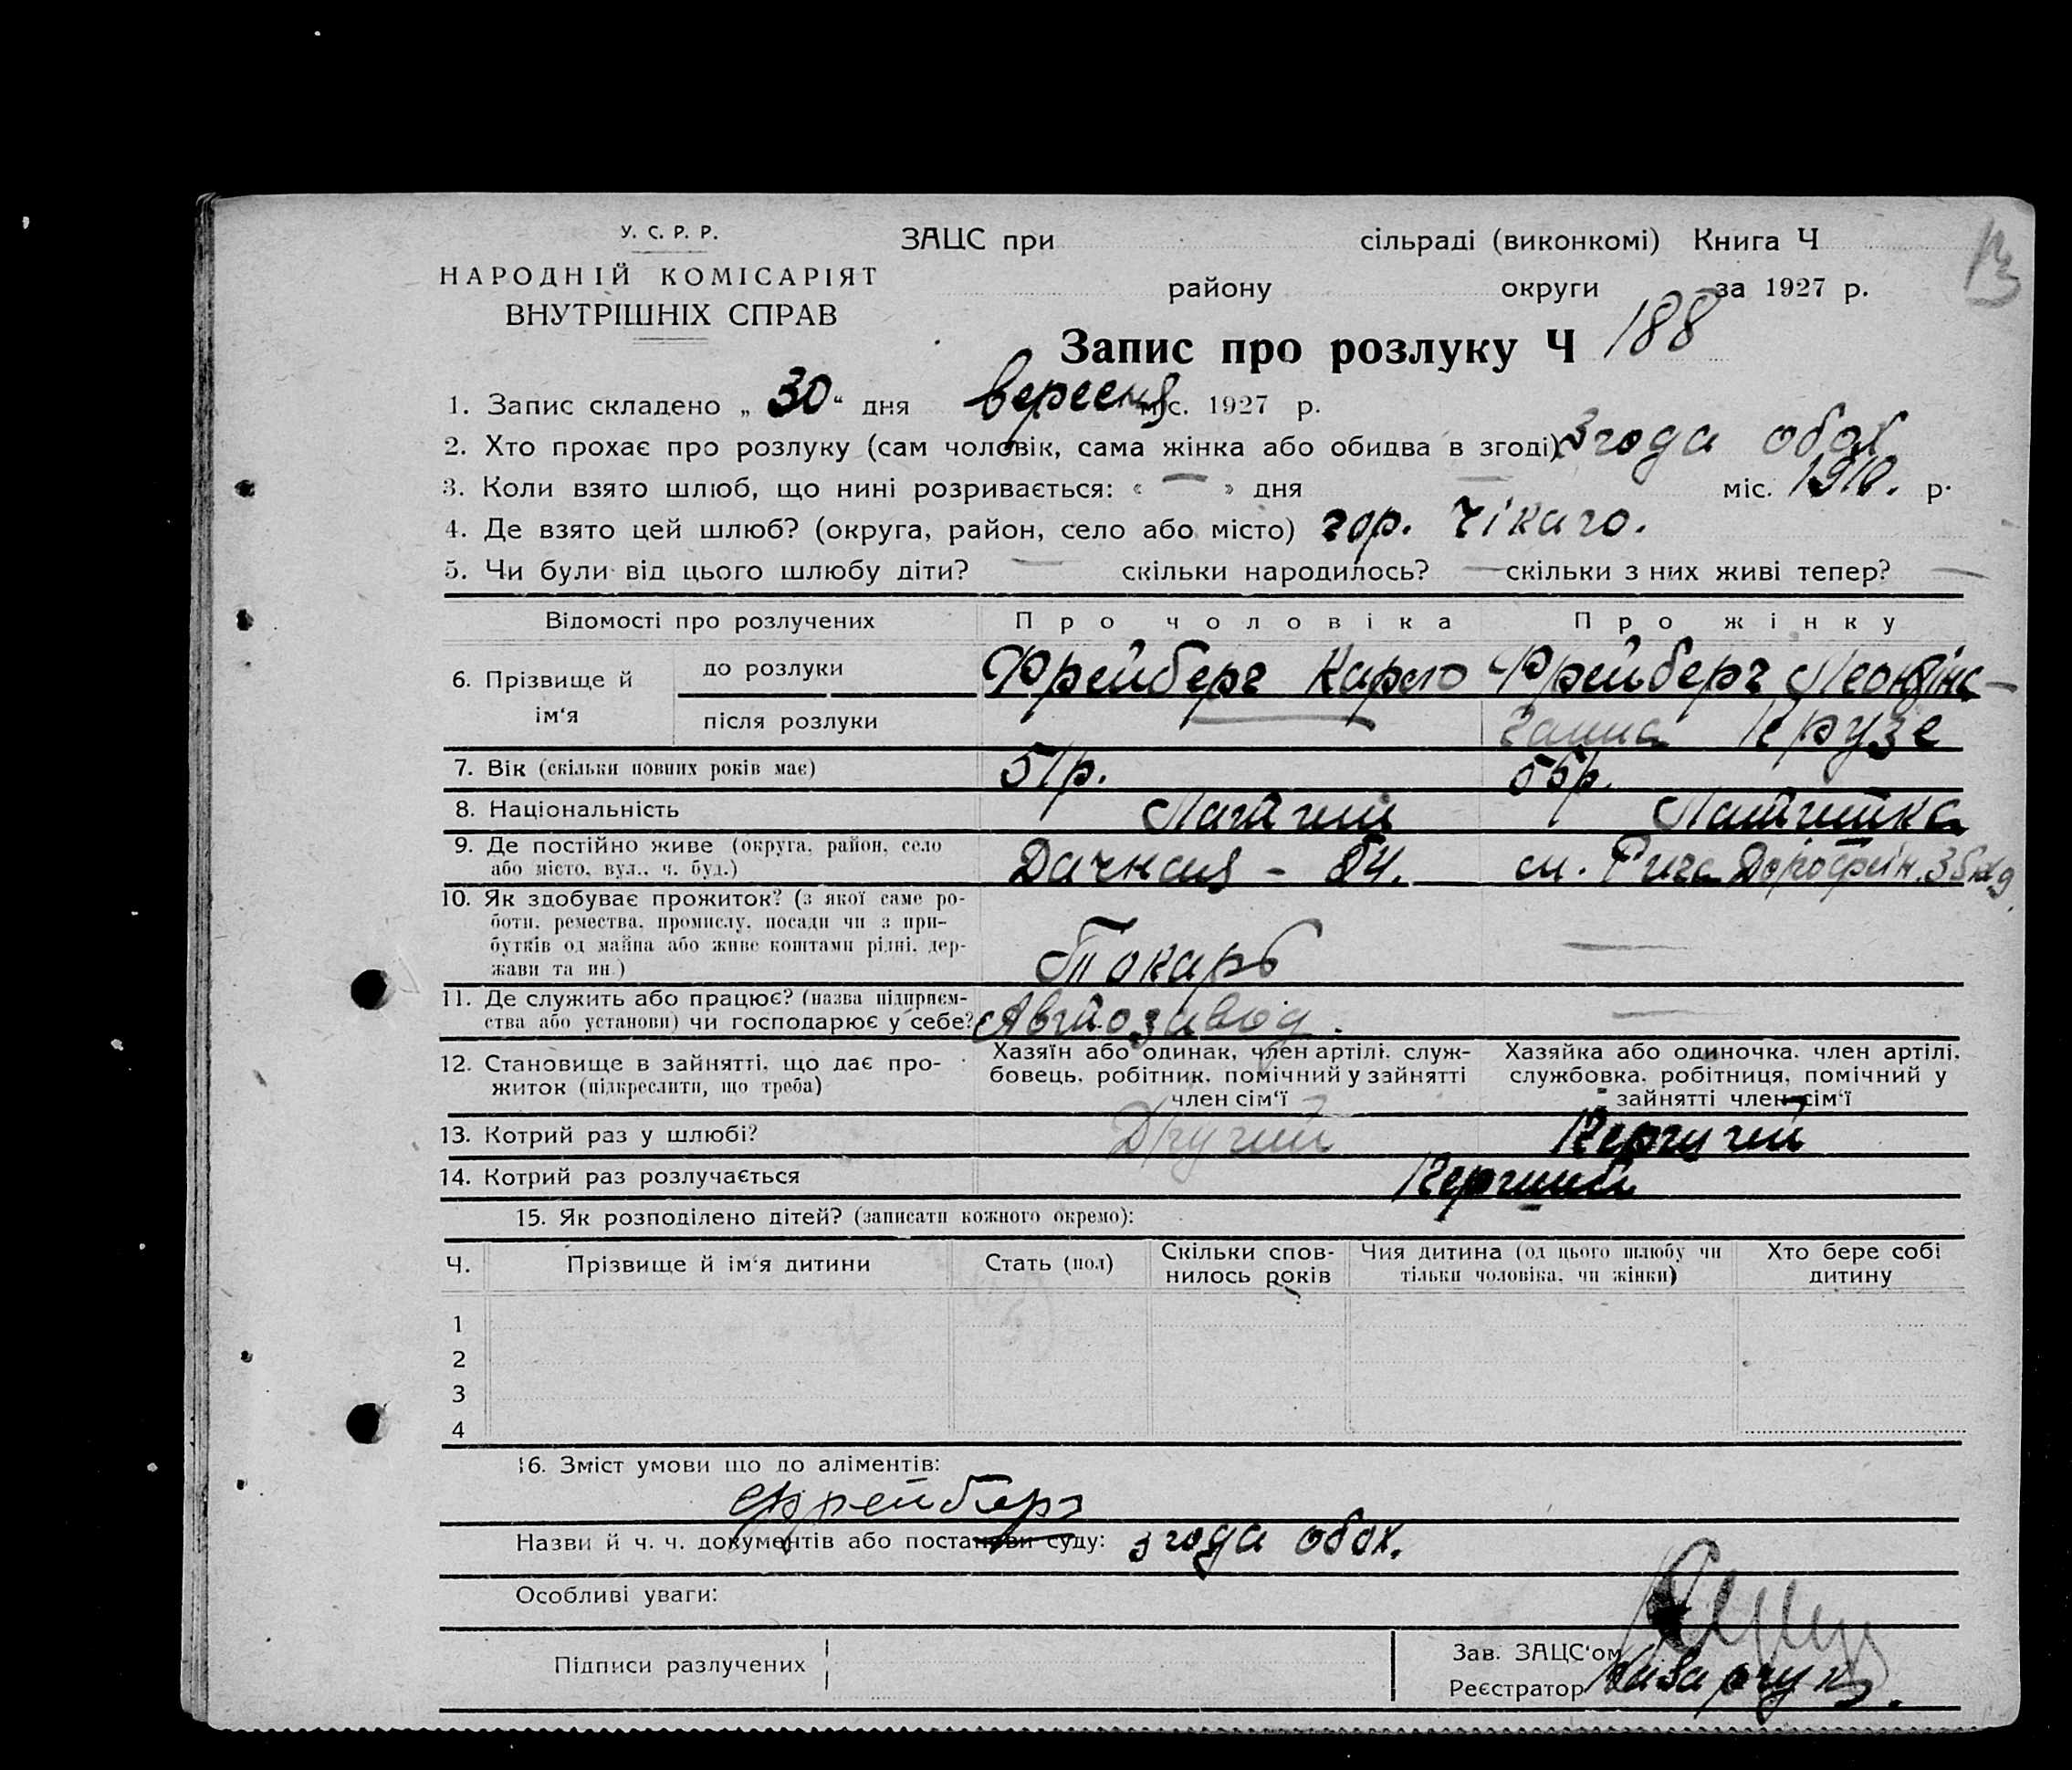 У. С. Р. Р.
НАРОДНІЙ КОМІСАРІЯТ
ВНУТРІШНІХ СПРАВ
ЗАЦС при сільраді (виконкомі) Книга Ч
13
району округи за 1927 р.
Запис про розлуку Ч 188
1. Запис складено „ 30 “ дня вересня міс. 1927 р.
2. Хто прохає про розлуку (сам чоловік, сама жінка або обидва в згоді) згода обох
3. Коли взято шлюб, що нині розривається: « — » дня — міс. 1910. р.
4. Де взято цей шлюб? (округа, район, село або місто) гор. Чікаго.
5. Чи були від цього шлюбу діти? — скільки народилось? — скільки з них живі тепер? —
Відомості про розлучених
Про чоловіка
Про жінку
6. Прізвище й ім‘я
до розлуки
Фрейберг Карло
Фрейберг
після розлуки
—
Крузе
7. Вік (скільки повних років має)
51р.
55р.
8. Національність
Латиш
Латишка
9. Де постійно живе (округа, район, село
або місто, вул., ч. буд.)
Дачная - 84.
м. Рига
10. Як здобуває прожиток? (з якої саме ро-
боти, ремества, промислу, посади чи з при-
бутків од майна або живе коштами рідні, дер-
жави та ин.)
Токарь
—
11. Де служить або працює? (назва підприєм-
ства або установи) чи господарює у себе?
Автозавод.
—
12. Становище в зайнятті, що дає про-
житок (підкреслити, що треба)
Хазяїн або одинак, член артілі, служ-
бовець, робітник, помічний у зайнятті
член сім‘ї
Хазяйка або одиночка, член артілі,
службовка, робітниця, помічний у
зайнятті член сім‘ї
13. Котрий раз у шлюбі?
Другий
14. Котрий раз розлучається
15. Як розподілено дітей? (записати кожного окремо):
Ч.
Прізвище й ім‘я дитини
Стать (пол)
Скільки спов-
нилось років
Чия дитина (од цього шлюбу чи
тільки чоловіка, чи жінки)
Хто бере собі
дитину
1
2
3
4
16. Зміст умови що до аліментів:
Фрейберг
Назви й ч. ч. документів або постанови суду: згода обох.
Особливі уваги:
Підписи разлучених
Зав. ЗАЦС‘ом
Реєстратор